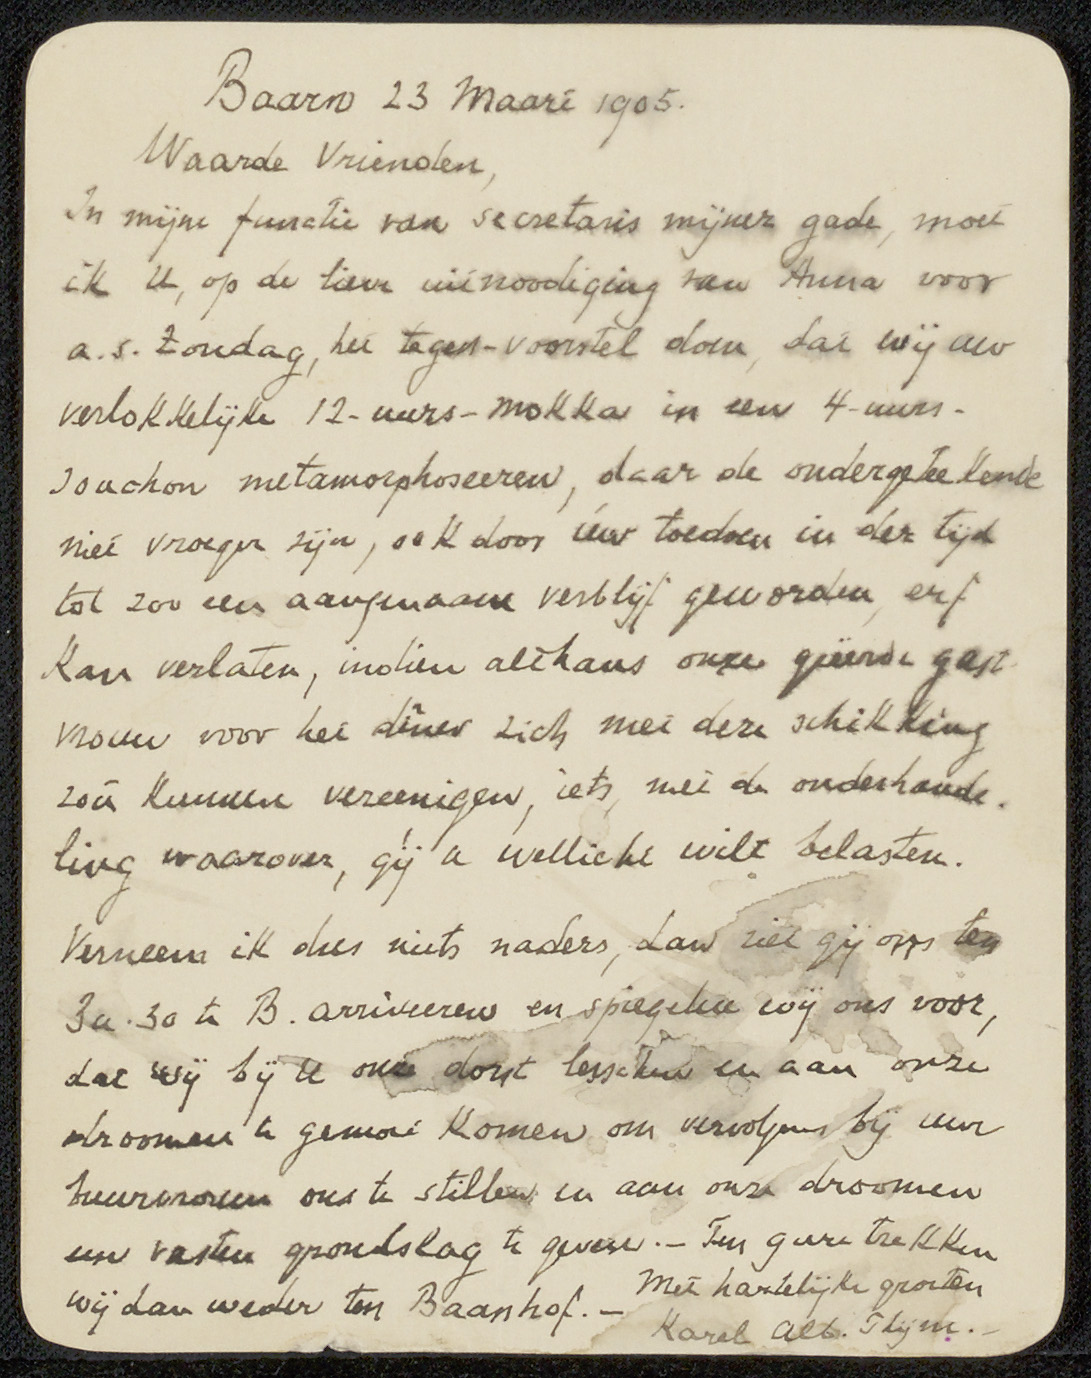 Baarn 23 Maart 1905.
Waarde Vrienden,
In mijne functie van secretaris mijner gade, moet
ik U, op de lieve uitnoodiging van Anna voor
a.s. Zondag, het tegen-voorstel doen, dat wij uw
verlokkelijke 12-uurs-mokka in een 4-uurs-
souchon metamorphoseeren, daar de ondergeteekende
niet vroeger zijn, ook door úw toedoen in der tijd
tot zoo een aangenaam verblijf geworden, erf
kan verlaten, indien althans onze geëerde gast
vrouw voor het dîner zich met deze schikking
zoû kunnen vereenigen, iets, met de onderhande-
ling waarover, gij u wellicht wilt belasten.
Verneem ik dus niets naders, dan ziet gij ons ten
3 u. 30 te B. arriveeren en spiegelen wij ons voor,
dat wij bij U onze dorst lesschen en aan onze
droomen te gemoet komen om vervolgens bij uwe
buurvrouw ons te stillen en aan onze droomen
een vasten grondslag te geven. — Ten gure trekken
wij dan weder ten Baarnhof. —
Met hartelijke groeten
Karel Alb. Thijm. —